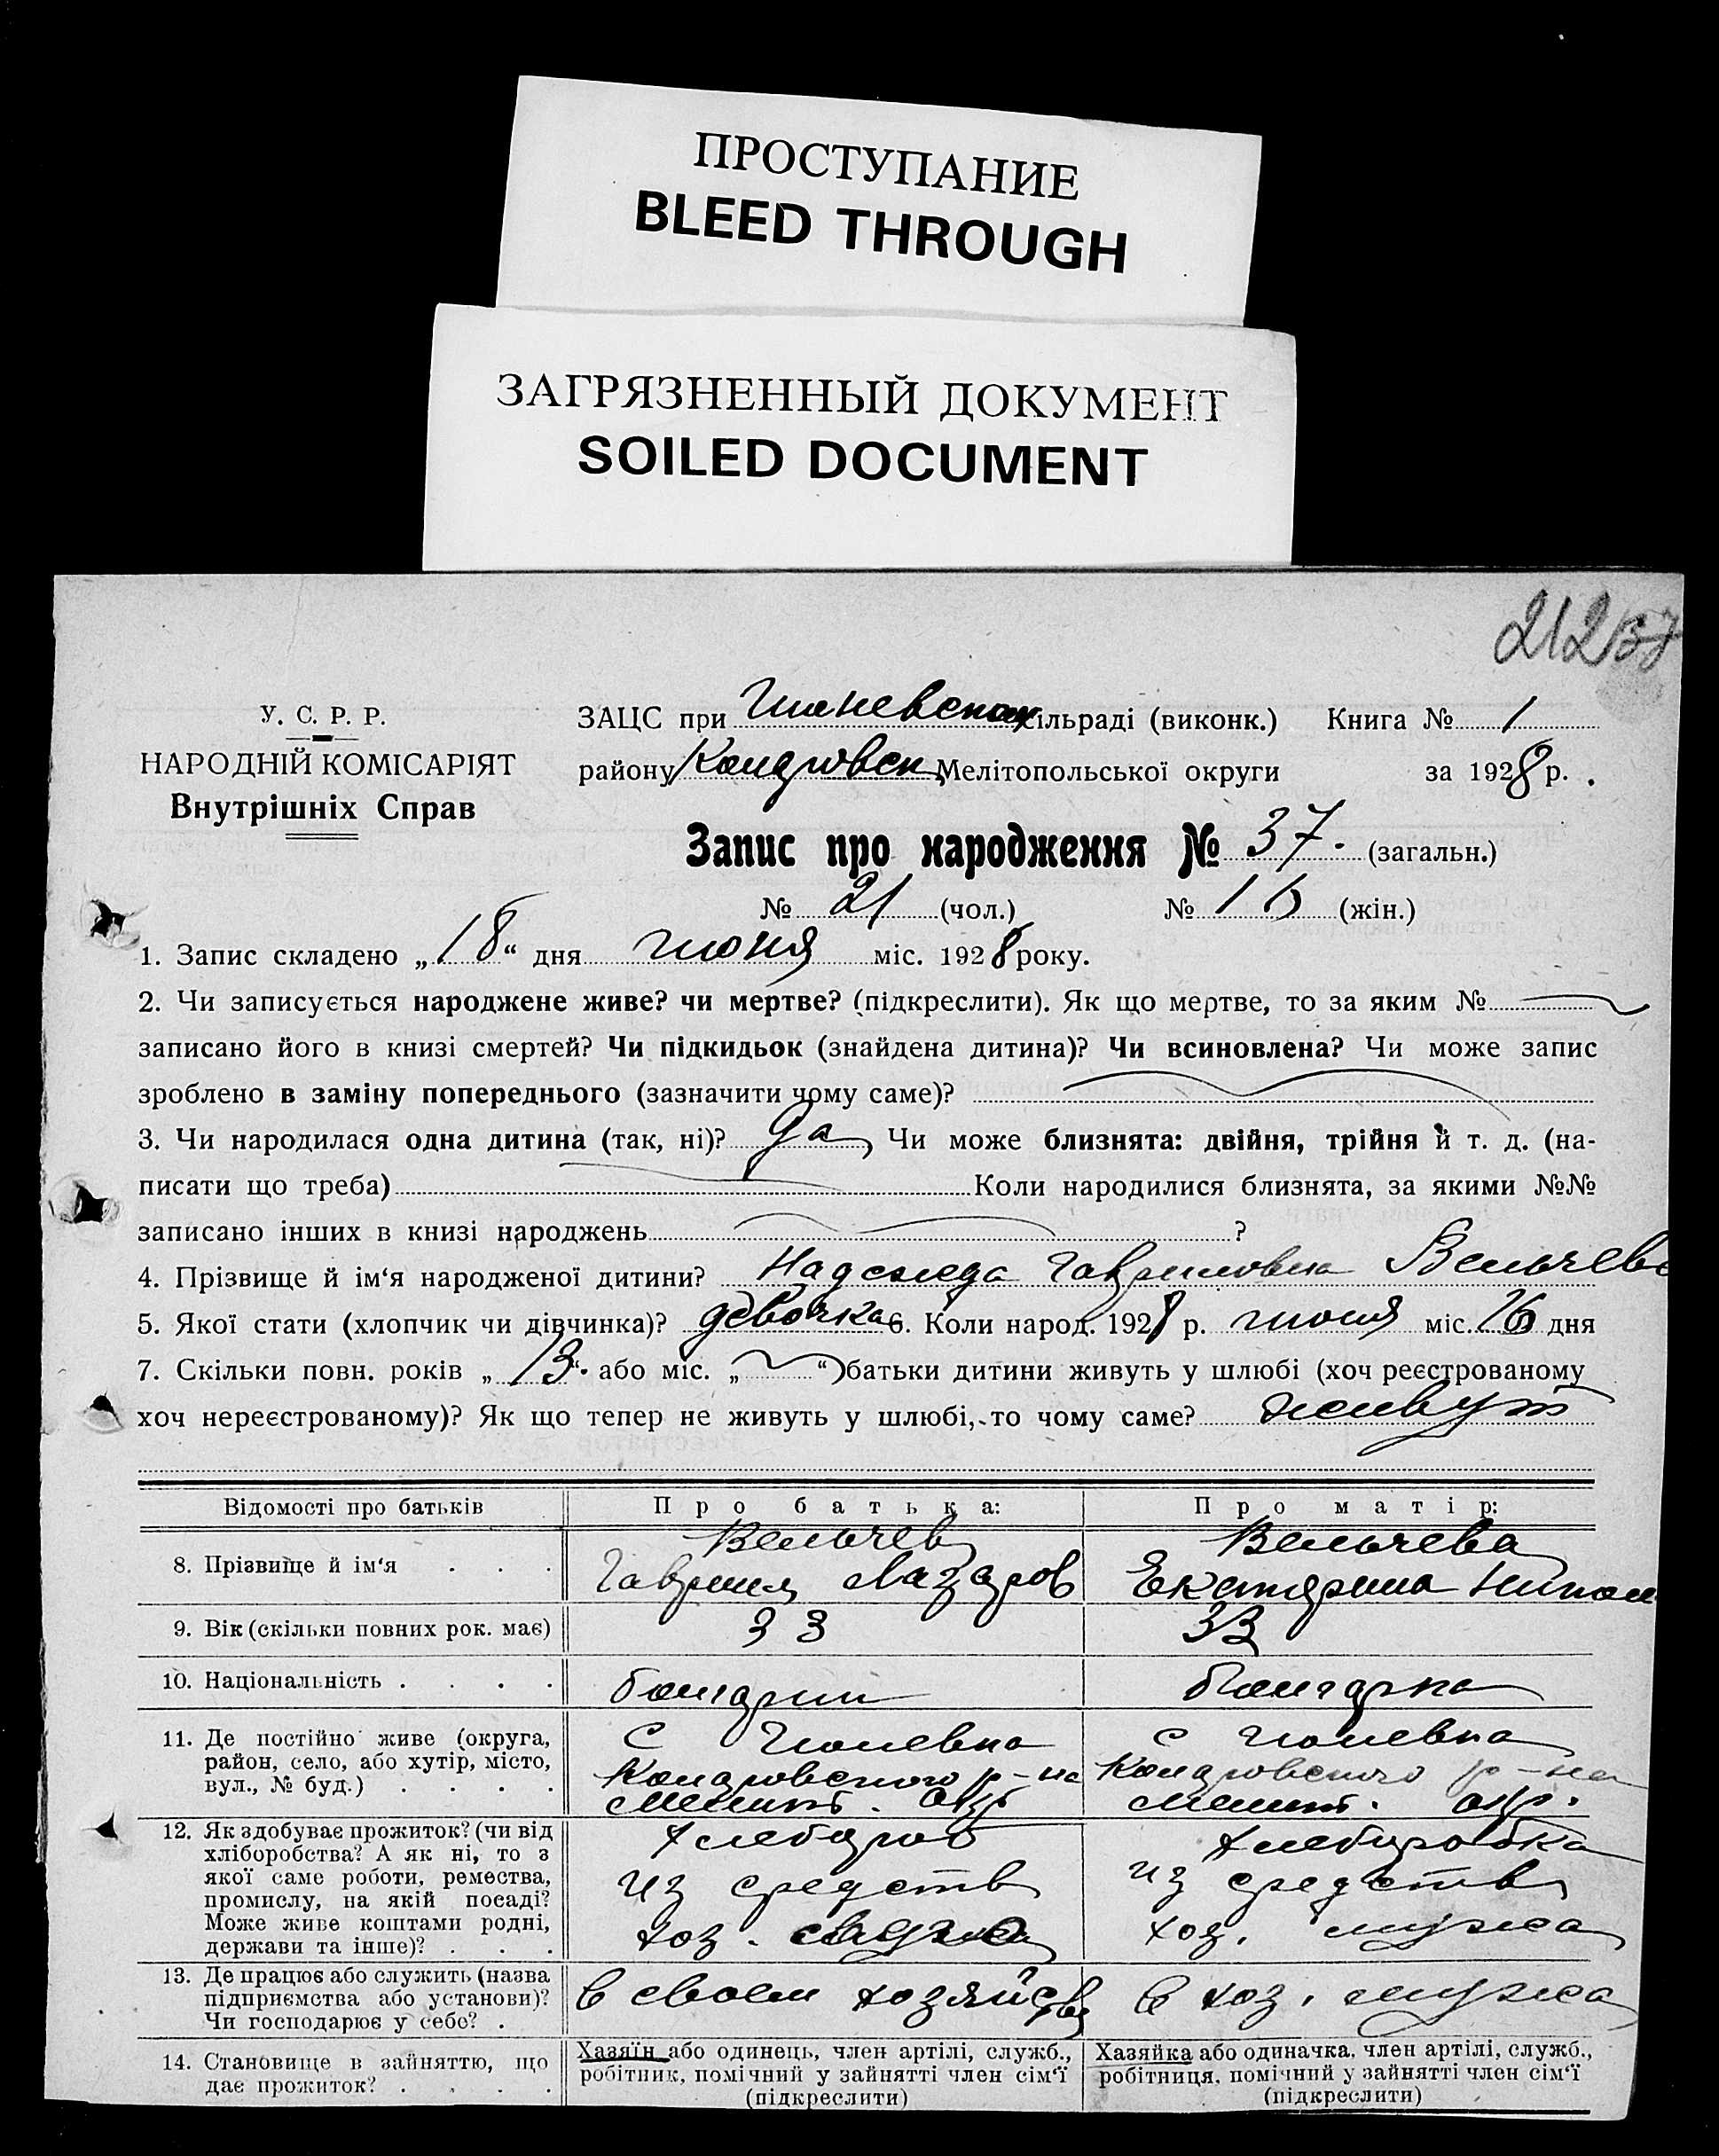 ПРОСТУПАНИЕ
BLEED THROUGH
ЗАГРЯЗНЕННЫЙ ДОКУМЕНТ
SOILED DOCUMENT
212
У. С. Р. Р.
НАРОДНІЙ КОМІСАРІЯТ
Внутрішніх Справ
ЗАЦС при Гюневской сільраді (виконк.) Книга № 1
району Коларовск Мелітопольської округи за 1928 р.
Запис про народження № 37. (загальн.)
№ 21 (чол.) № 16 (жін.)
1. Запис складено „18“ дня июня міс. 1928 року.
2. Чи записується народжене живе? чи мертве? (підкреслити). Як що мертве, то за яким №
записано його в книзі смертей? Чи підкидьок (знайдена дитина)? Чи всиновлена? Чи може запис
зроблено в заміну попереднього (зазначити чому саме)?
3. Чи народилася одна дитина (так, ні)? да Чи може близнята: двійня, трійня й т. д. (на-
писати що треба) Коли народилися близнята, за якими №№
записано інших в книзі народжень ?
4. Прізвище й ім‘я народженої дитини? Надежда Гавриловна Вельчева
5. Якої стати (хлопчик чи дівчинка)? девочка 6. Коли народ. 1928 р. июня міс. 16 дня
7. Скільки повн. років „13“ або міс. „ “ батьки дитини живуть у шлюбі (хоч реєстрованому
хоч нереєстрованому)? Як що тепер не живуть у шлюбі, то чому саме? живут
Відомості про батьків Про батька: Про матір:
8. Прізвище й ім‘я . . . Вельчев Вельчева
Гаврил Лазаров Екатерина Никол
9. Вік (скільки повних рок. має) 33 33
10. Національність . . . . болгарин болгарка
11. Де постійно живе (округа, с Гюневка с Гюневка
район, село, або хутір, місто, Коларовского р-на Коларовского р-на
вул., № буд.) . . . . Мелит. окр Мелит. окр.
12. Як здобуває прожиток? (чи від хлебороб хлеборобка
хліборобства? А як ні, то з
якої саме роботи, ремества, из средств из средств
промислу, на якій посаді?
Може живе коштами родні, хоз. хоз. мужа
держави та інше)? . . .
13. Де працює або служить (назва в своем хозяйстве в хоз. мужа
підприємства або установи)?
Чи господарює у себе? .
14. Становище в зайняттю, що Хазяїн або одинець, член артілі, служб., Хазяйка або одиначка, член артілі, служб.,
дає прожиток? . . . . робітник, помічний у зайнятті член сім‘ї робітниця, помічний у зайнятті член сім‘ї
(підкреслити) (підкреслити)